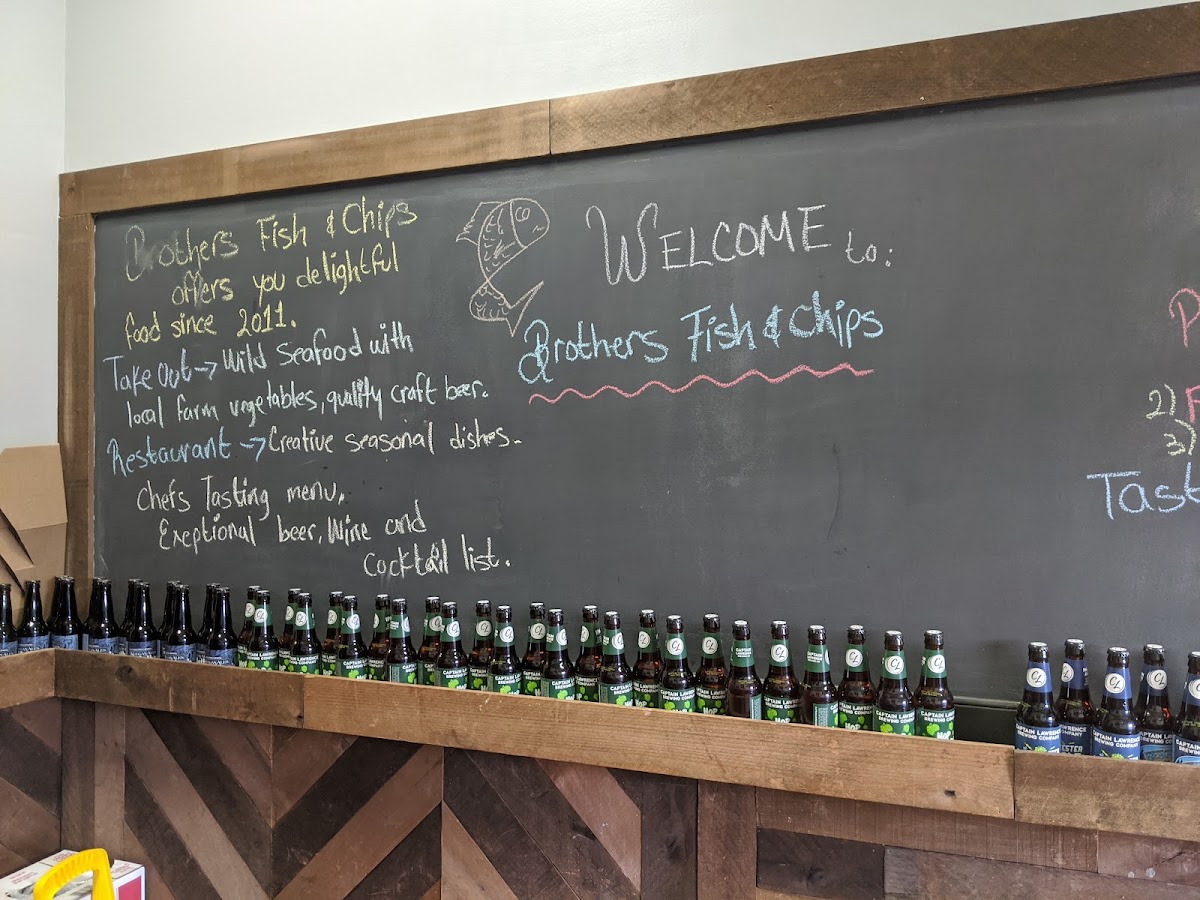 Brothers Fish & Chips
offers you delightful
food since 2011.
Take Out → Wild Seafood with
local farm vegetables, quality craft beer.
Restaurant → Creative seasonal dishes.
Chefs Tasting menu,
Exeptional beer, Wine and
Cocktail list.
WELCOME to:
Brothers Fish & Chips
2)
3)
CAPTAIN LAWRENCE
BREWING COMPANY
HOP
CL